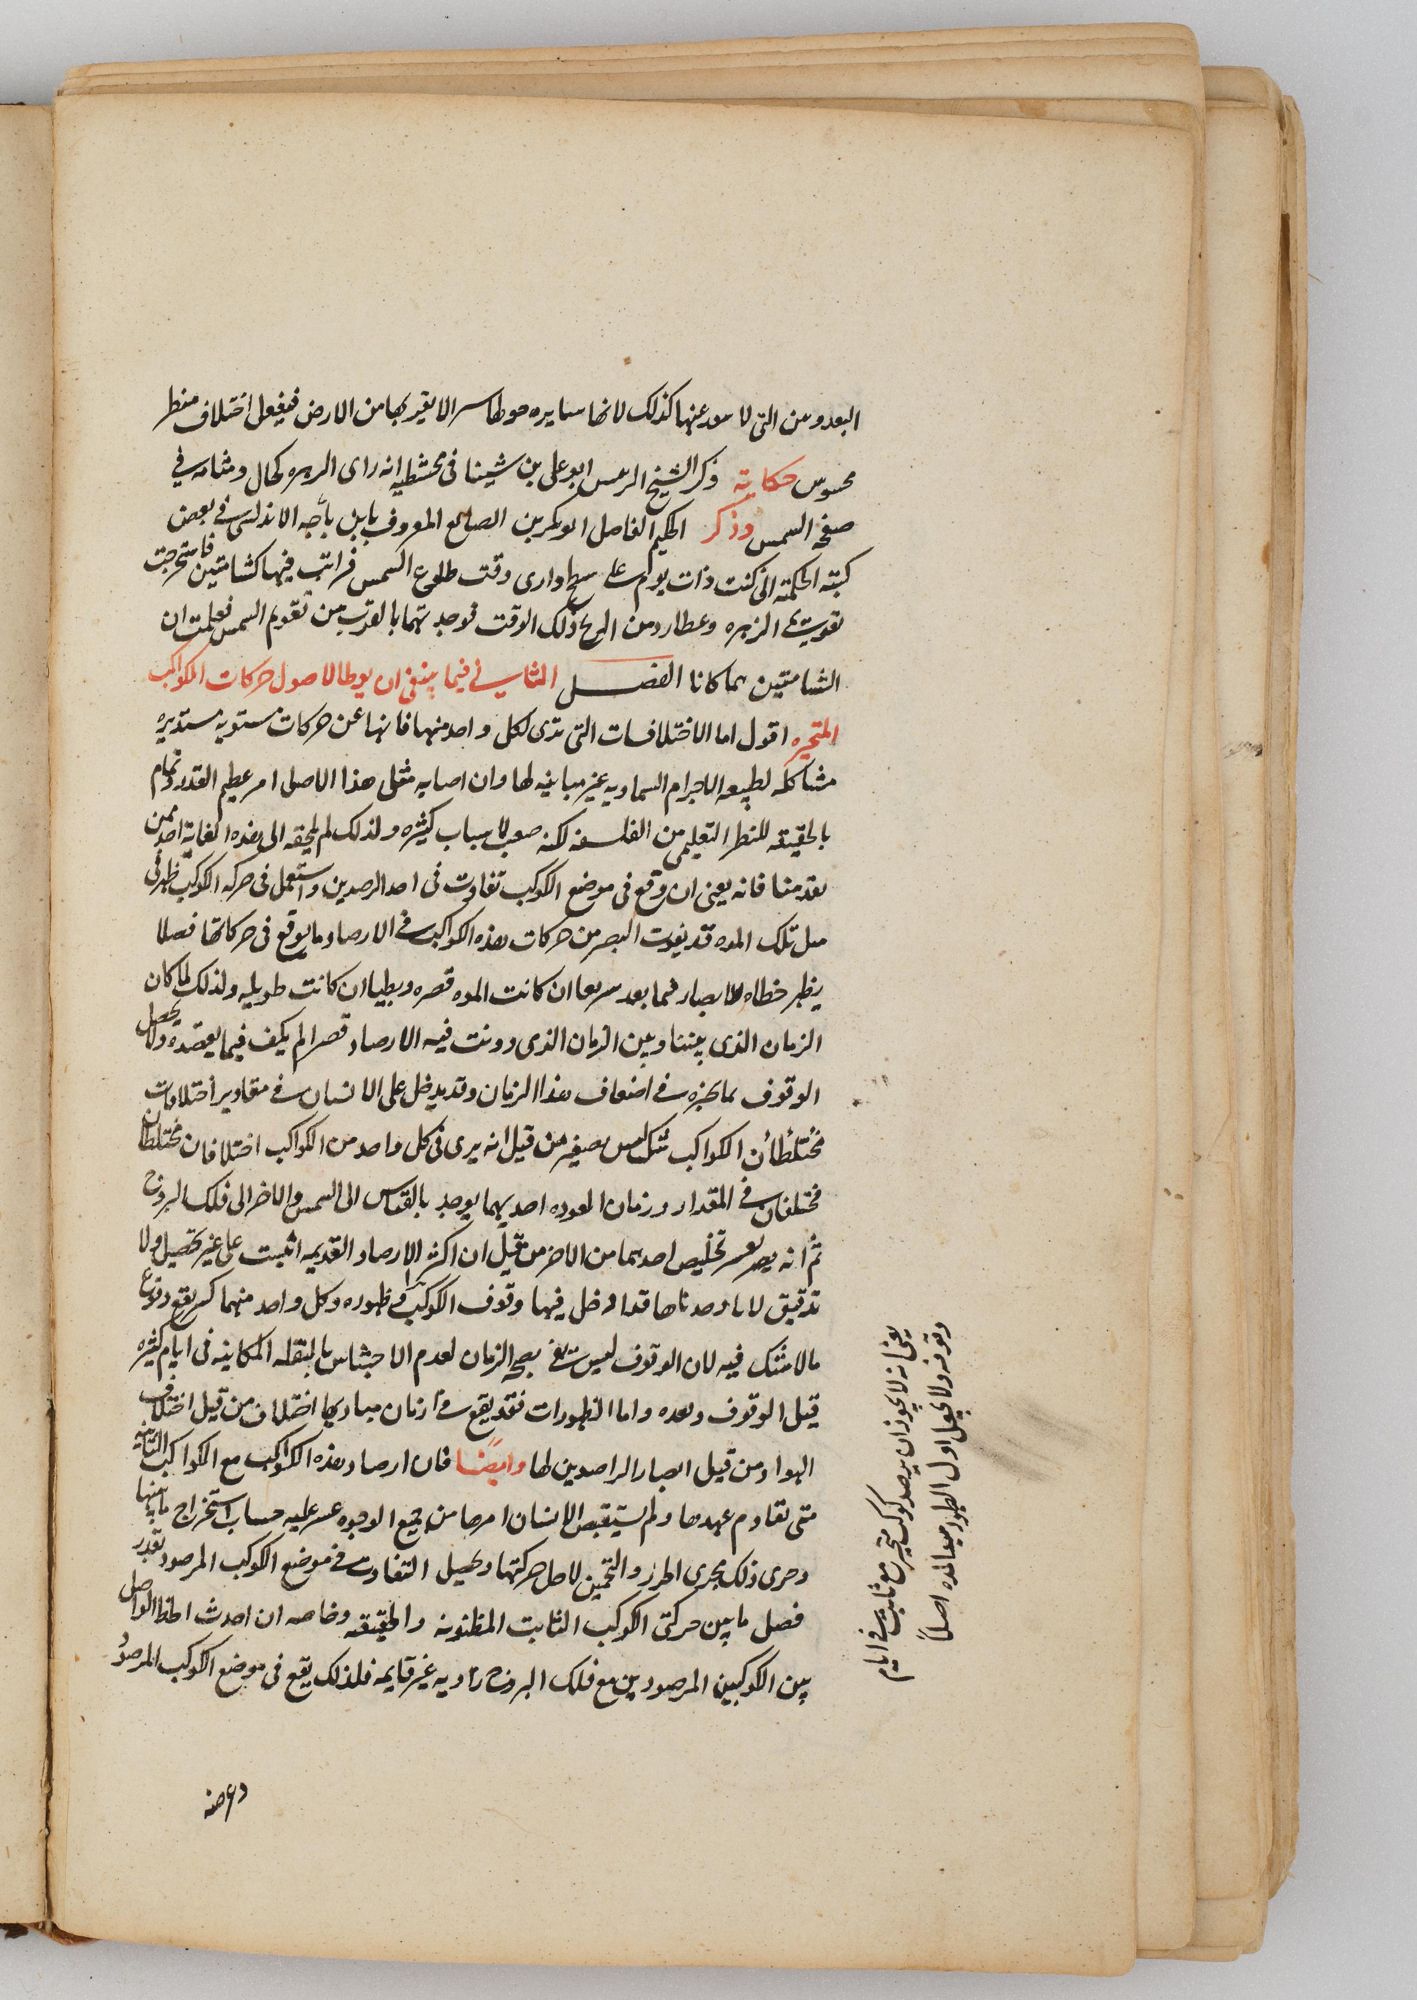 البعد ومن التي لا بعد عنها كذلك لانها سايره الا بقربها من الارض فيفعل اختلاف منظر
محسوس حكاية ذكر الشيخ الرئيس ابو على بن سينا فى مجسطيه انه راى الزهره كخال وشامه في
صفحه الشمس وذكر الحكيم الفاضل ابو بكر بن الصايغ المعروف بابن باجه الاندلسى في بعض
كتبه الحكمته انى كنت ذات يوم على سطح دارى وقت طلوع الشمس فرايت فيها كشامتين فاستخرجت
تقويمى الزهره وعطارد من الزيج ذلك الوقت فوجدتهما بالقرب من تقويم الشمس فعلمت ان
الشامتين هما كانا الفصل الثانى في فيما ينبغى ان يوطا لاصول حركات الكواكب
المتحيره اقول اما الاختلافات التى ترى لكل واحد منها فانها عن حركات مستويه مستديره
مشاكله لطبيعه الاجرام السماويه غير مباينه لها وان اصابه مثل هذا الاصل امر عظيم القدر وتمام
بالحقيقه للنظر التعليمى من الفلسفه لكنه صعب لاسباب كثيره ولذلك لم يلحقه الى هذه الغايه احد ممن
تقدمنا فانه يعنى ان وقع فى موضع الكوكب تفاوت فى احد الرصدين واستعمل فى حركه الكوكب ظهر فى
مثل تلك المده قد يفوت البصر من حركات هذه الكواكب في الارصاد ما يوقع فى حركاتها فضلا
يظهر خطاه للابصار فيما بعد سريعا ان كانت المده قصيره وبطيا ان كانت طويله ولذلك لما كان
الزمان الذى بيننا وبين الزمان الذى دونت فيه الارصاد قصرا لم يكف فيما يقصده ولا يحصل
الوقوف بما يجزه في اضعاف هذا الزمان وقد يدخل على الانسان في مقادير اختلافات
مختلطان الكواكب شك ليس بصغير من قبل انه يرى فى كل واحد من الكواكب اختلافان مختلطان
مختلفان في المقدار وزمان العوده احديهما يوجد بالقياس الى الشمس والاخر الى فلك البروج
ثم انه يعسر تخليص احدهما من الاخر من قبل ان اكثر الارصاد القديمه اثبتت على غير تحصيل ولا
تدقيق لانا وجدناها قد ادخل فيها وقوف الكوكب او ظهوره وكل واحد منهما يقع وقوع
مالا شك فيه لان الوقوف ليست زمان لعدم الاحساس بالنقله المكانيه فى ايام كثيره
قبل الوقوف وبعده واما الظهورات فقد يقع في ازمان مباديها اختلاف من قبل اختلاف
الهواء ومن قبل ابصار الراصدين لها وايضًا فان ارصاد هذه الكواكب مع الكواكب الثابته
متى تقادم عهدها ولم يستقص الانسان امرها من جميع الوجوه عسر عليه حساب استخراج ما بينها
وجرى ذلك مجرى الحزر والتخمين لاجل حركتها وتحصيل التفاوت في موضع الكوكب المرصود بقدر
فضل ما بين حركتى الكوكب الثابت المظنونه والحقيقه وخاصه ان احدث الخط الواصل
بين الكوكبين المرصودين مع فلك البروج زاويه غير قايمه فلذلك يقع فى موضع الكوكب المرصود
يعنى انه لا يجوز ان يرصد كوكب متحير مع ثابت في ايام
وقوفه ولا يجعل اول الظهور اصلاً